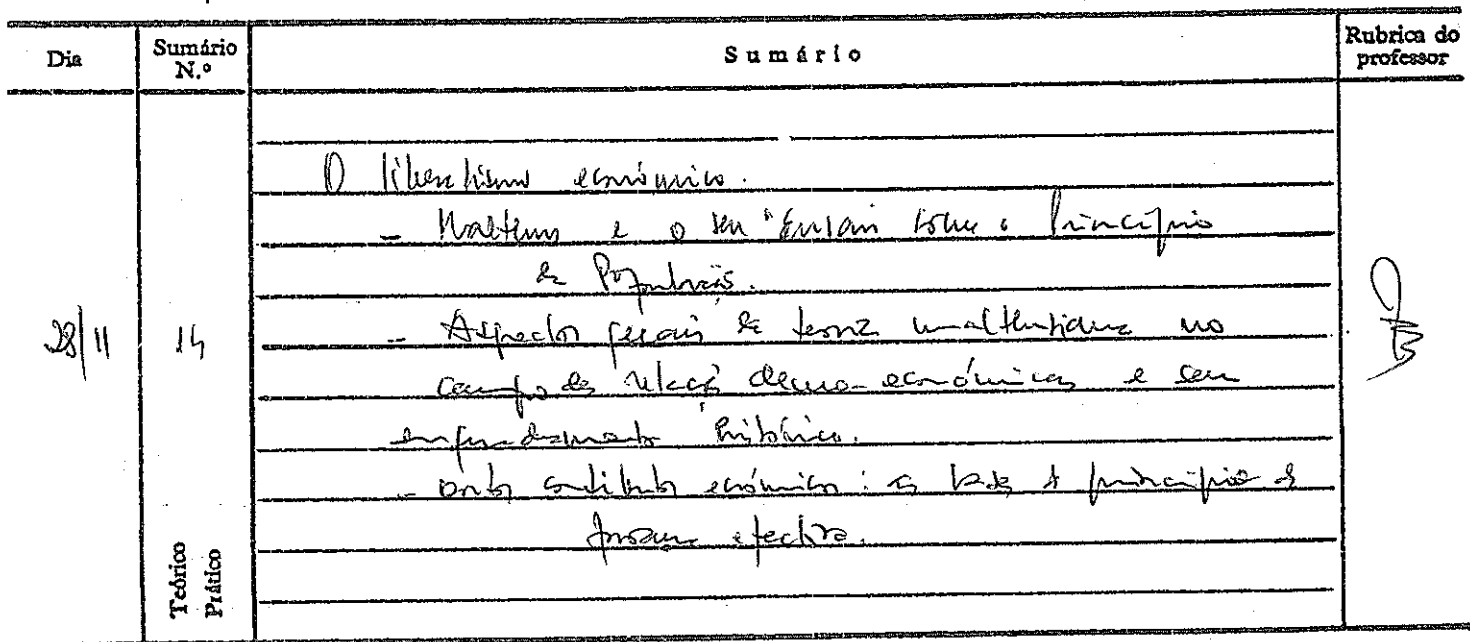 Dia
Sumário N.º
Sumário
Rubrica do professor
28/11
14
O liberalismo económico.
- Malthus e o seu "Ensaio sobre o Princípio
de População.
- Aspectos gerais da teoria malthusiana no
campo das relações demo-económicas e seu
enquadramento histórico.
- Outros contributos económicos: as bases do princípio da
procura efectiva.
Teórico
Prático